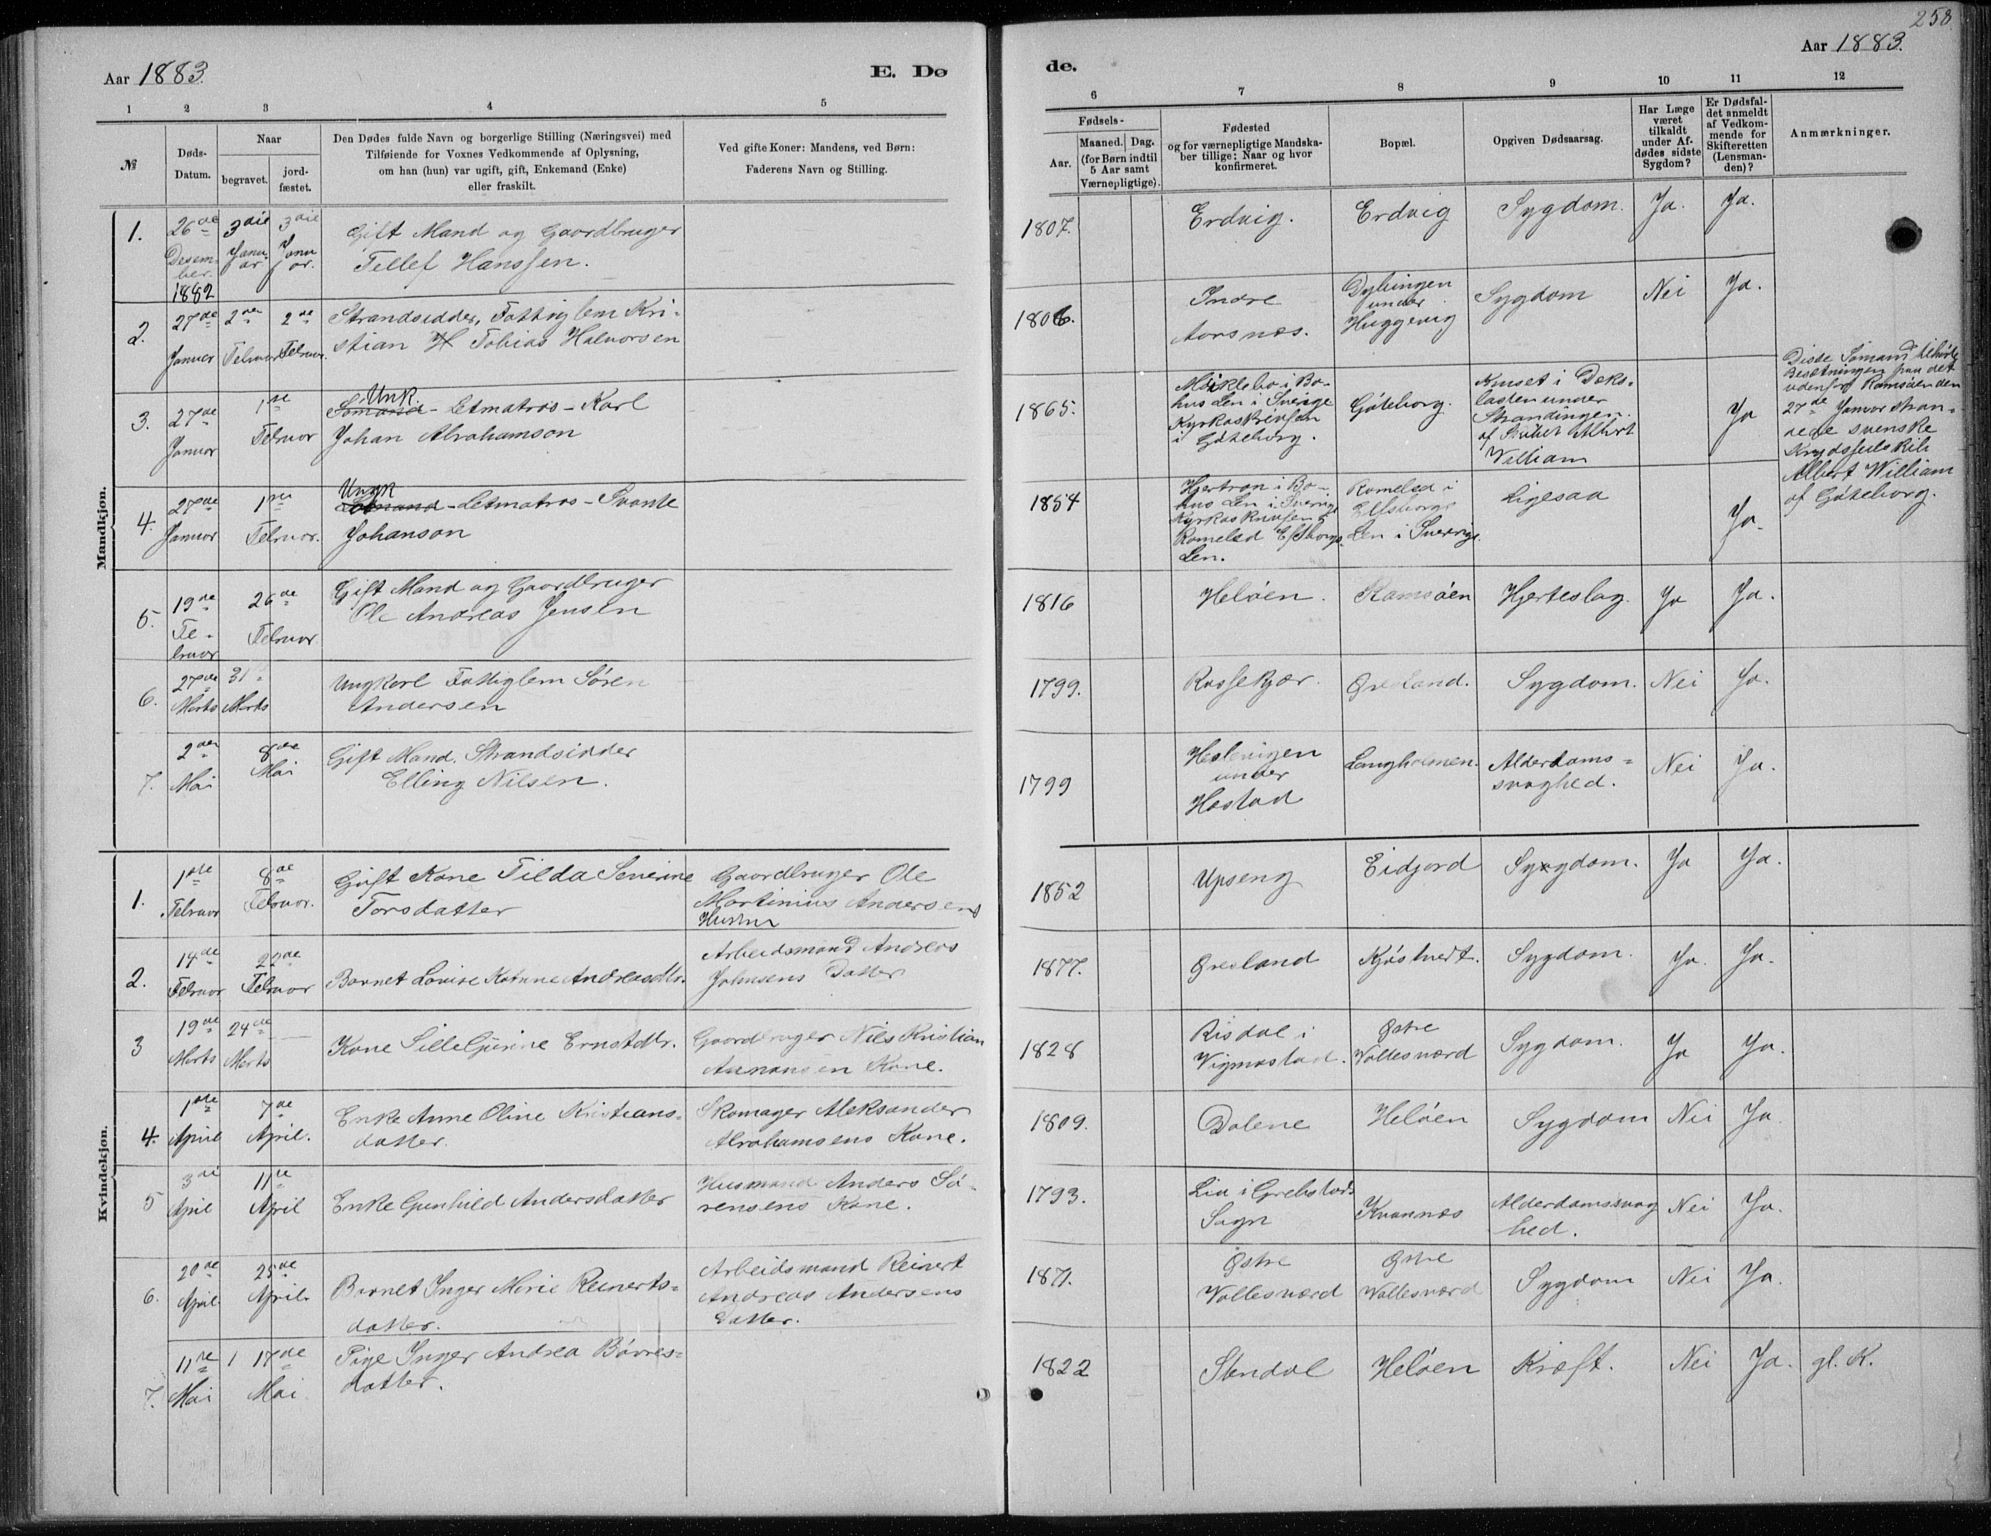 258
Aar 1883.
E. Dø
de.
Aar 1883.
1 2 3 4 5 6 7 8 9 10 11 12
№
Døds-
Datum.
Naar
begravet.
jord-
fæstet.
Den Dødes fulde Navn og borgerlige Stilling (Næringsvei) med
Tilføiende for Voxnes Vedkommende af Oplysning,
om han (hun) var ugift, gift, Enkemand (Enke)
eller fraskilt.
Ved gifte Koner: Mandens, ved Børn:
Faderens Navn og Stilling.
Fødsels-
Aar.
Maaned. Dag.
(for Børn indtil
5 Aar samt
Værnepligtige).
Fødested
og for værnepligtige Mandska-
ber tillige: Naar og hvor
konfirmeret.
Bopæl.
Opgiven Dødsaarsag.
Har Læge
været
tilkaldt
under Af-
dødes sidste
Sygdom?
Er Dødsfal-
det anmeldt
af Vedkom-
mende for
Skifteretten
(Lensman-
den)?
Anmærkninger.
Mandkjøn.
1.
26de
Desem-
ber.
1882
3die
Janu-
ar
3die
Janu
ar.
Gift Mand og Gaardbruger
Tellef Hanssen.
1807.
Erdvig.
Erdvig
Sygdom.
Ja.
Ja.
2.
27de
Januar
2den
Februar
2de
Februar.
Strandsidder, Fattiglem Kri-
stian H Tobias Halvorsen
1806.
Indre
Aarsnæs.
under
Sygdom
Nei
Ja.
3.
27de
Januar
1ste
Februar
Unk.
Sömand - Letmatros - Karl
Johan Abrahamson
1865.
i Bo-
hus Len i Sverige
i Göteborg.
Göteborg.
Knust i Dæks-
lasten under
Strandingen
William
Ja
Disse Sömænd tilhörte
Besætningen paa det
udenfor Ramsöen den
27de Januar stran-
dede svenske
Albert William
af Göteborg.
4.
27de
Januar
1ste
Februar.
Ungk
Sömand - Letmatros - Svante
Johanson
1854
i Bo-
hus Len i Sverige
Romelsd Elfsborgs
Len.
Romelsd i
Elfsborgs
Len i Sverige.
Ligesaa
Ja.
5.
19de
Fe-
bruar
26de
Februar
Gift Mand og Gaardbruger
Ole Andreas Jensen
1816
Helöen.
Ramsöen
Hjerteslag.
Ja
Ja.
6.
27de
Marts
31
Marts
Ungkarl Fattiglem Sören
Andersen
1799.
Rossekjær.
Øresland.
Sygdom.
Nei
Ja.
7.
2den
Mai
8de
Mai
Gift Mand. Strandsidder
Elling Nilsen.
1799
under
Hastad
Langholmen.
Alderdoms-
svaghed.
Nei
Ja.
Kvindekjøn.
1.
1ste
Februar
8de
Februar.
Gift Kone Tilda Severine
Torsdatter
Gaardbruger Ole
Martinius Andersens
Hustru
1852
Upseng
Eidjord
Sygdom.
Ja
Ja.
2.
14de
Februar
22de
Februar
Barnet Lovise Katrine Andreasdtr.
Arbeidsmand Andreas
Johnsens Datter
1877.
Øresland
Kjöstvedt.
Sygdom.
Ja.
Ja.
3
19de
Marts
24de
Marts
Kone Sille Gurine Ernstdtr.
Gaardbruger Nils Kristian
Aanonsen Kone.
1828
Risdal i
Vigmostad.
Østre
Vallesværd
Sygdom.
Ja
Ja.
4.
1ste
April
7de
April.
Enke Anne Oline Kristians-
datter.
Skomager Aleksander
Abrahamsens Kone.
1809.
Dalene
Helöen
Sygdom
Nei
Ja.
5
3die
April
11te
April
Enke Gunhild Andersdatter
Husmand Anders Sö-
rensens Kone.
1793.
Lia i Grebstads
Sogn
Kvannæs
Alderdomssvag
hed.
Nei
Ja.
6.
20de
April
25de
April.
Barnet Inger Marie Reinerts-
datter.
Arbeidsmand Reinert
Andreas Andersens
Datter.
187.
Østre
Vallesværd
Østre
Vallesværd
Sygdom
Nei
Ja.
7.
11te
Mai
17de
Mai
Pige Inger Andrea Börres-
datter.
1822
Stendal
Helöen
Kræft.
Nei
Ja.
gl. K.